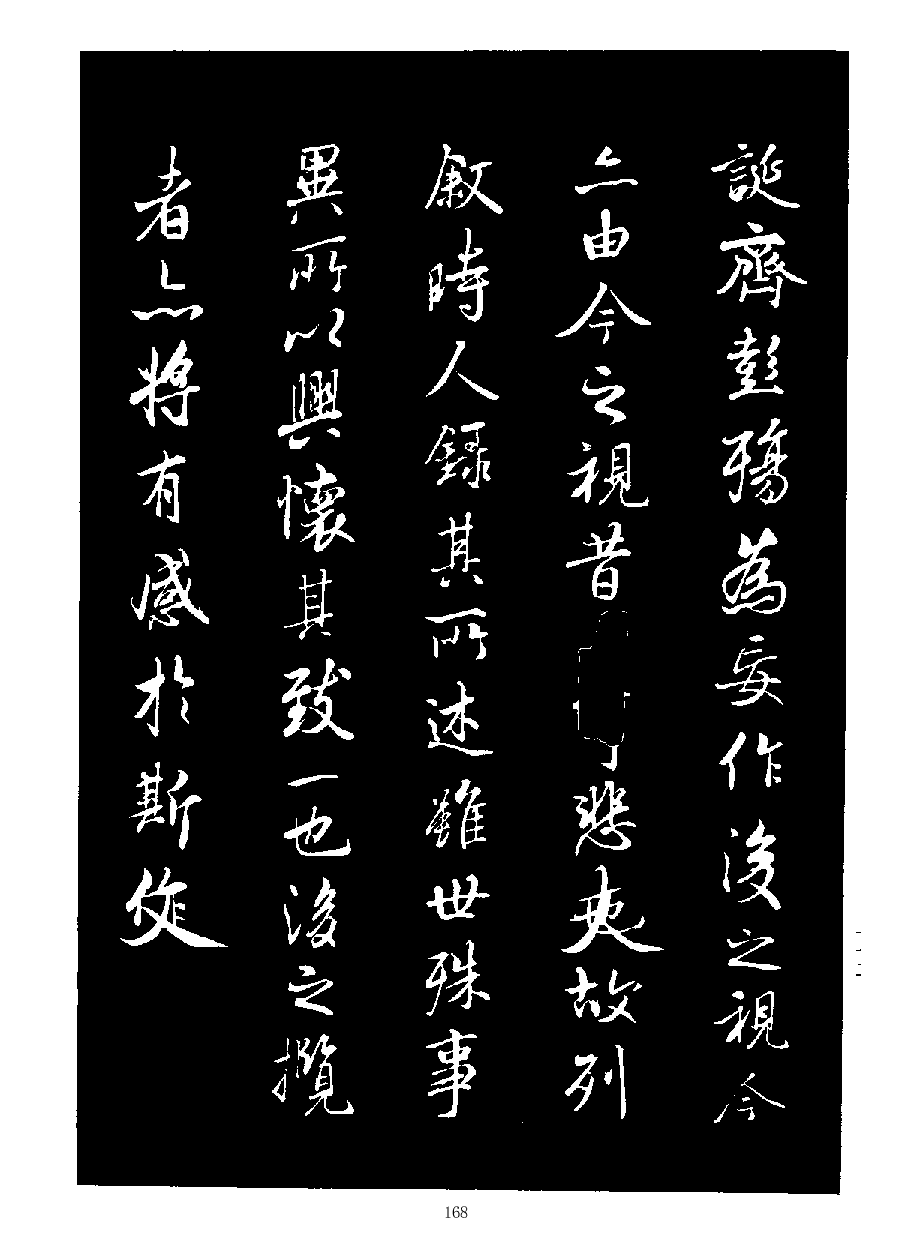 誕齊彭殤為妄作後之視今
亦由今之視昔悲夫故列
敘時人錄其所述雖世殊事
異所以興懷其致一也後之攬
者亦將有感於斯作
168